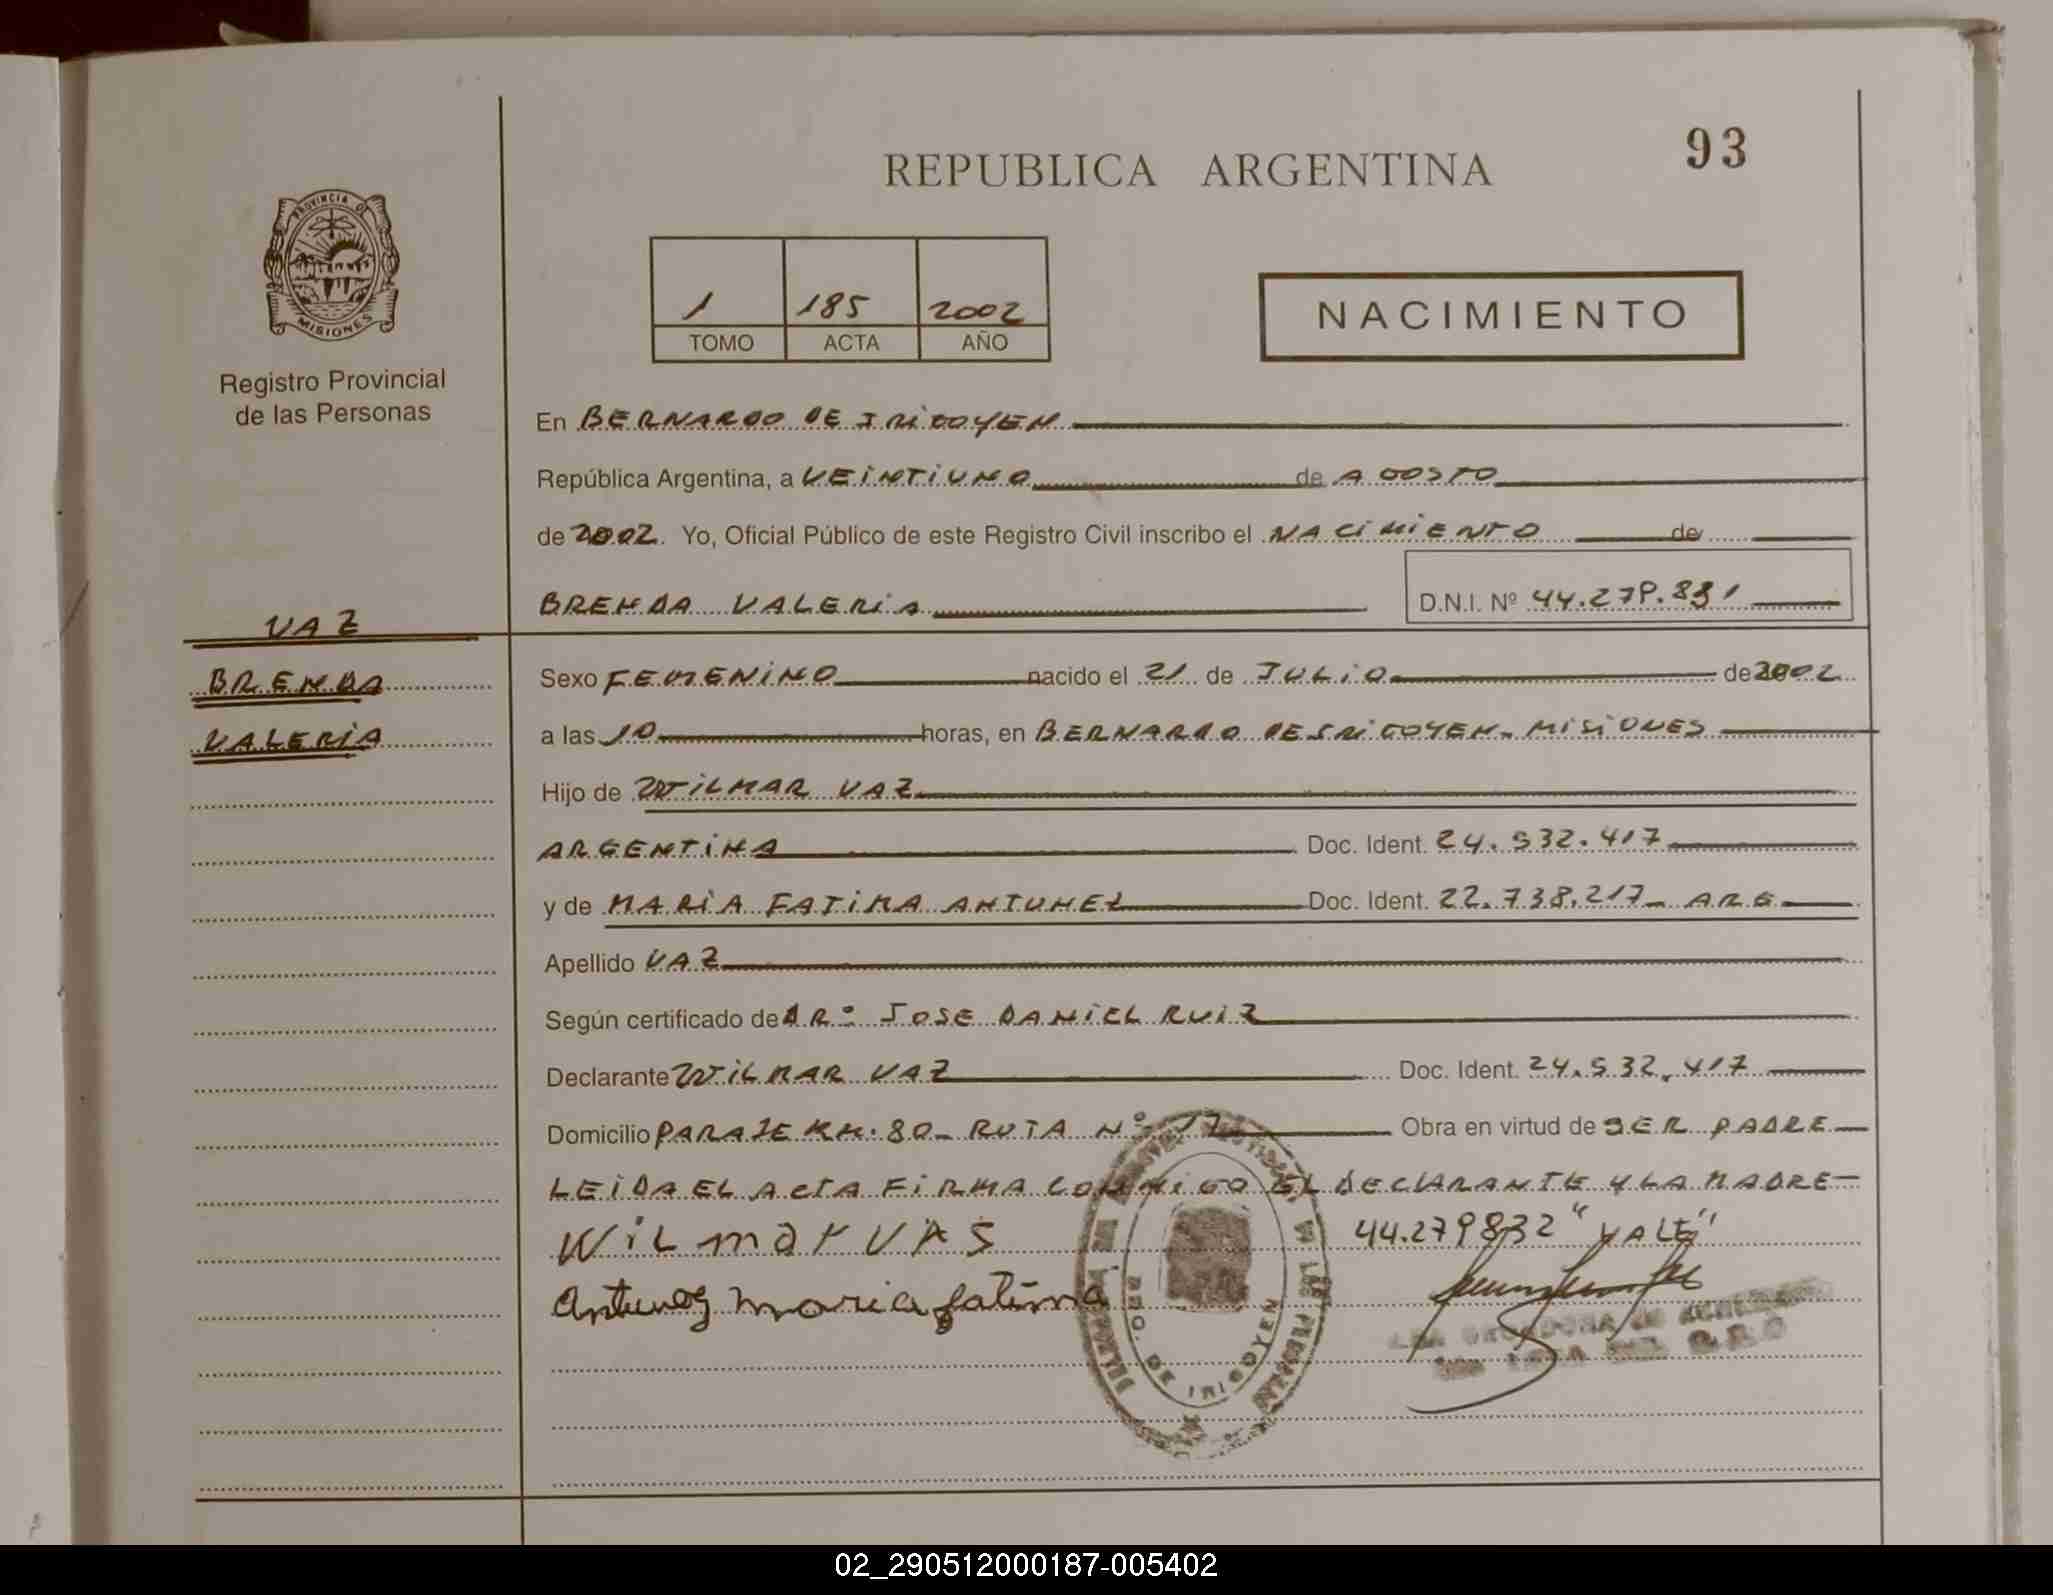 93
REPUBLICA ARGENTINA
PROVINCIA DE
MISIONES
Registro Provincial
de las Personas
1 185 2002
TOMO ACTA AÑO
NACIMIENTO
En BERNARDO DE IRIGOYEN
República Argentina, a VEINTIUNO de AGOSTO
de 2002. Yo, Oficial Público de este Registro Civil inscribo el NACIMIENTO de
BRENDA VALERIA D.N.I. Nº 44.279.831
VAZ
BRENDA
VALERIA
Sexo FEMENINO nacido el 21 de JULIO de 2002
a las 10 horas, en BERNARDO DE IRIGOYEN - MISIONES
Hijo de WILMAR VAZ
ARGENTINA Doc. Ident. 24.532.417
y de MARIA FATIMA ANTUNEZ Doc. Ident. 22.738.217 - ARG
Apellido VAZ
Según certificado de DR. JOSE DANIEL RUIZ
Declarante WILMAR VAZ Doc. Ident. 24.532.417
Domicilio PARAJE KM. 80 - RUTA Nº 17 Obra en virtud de SER PADRE
LEIDA EL ACTA FIRMA CONMIGO EL DECLARANTE Y LA MADRE
WiLmar VAS
44.279832 "VALE"
Antunez maria fatima
BDO. DE IRIGOYEN
DE LAS PERSONAS
02_290512000187-005402